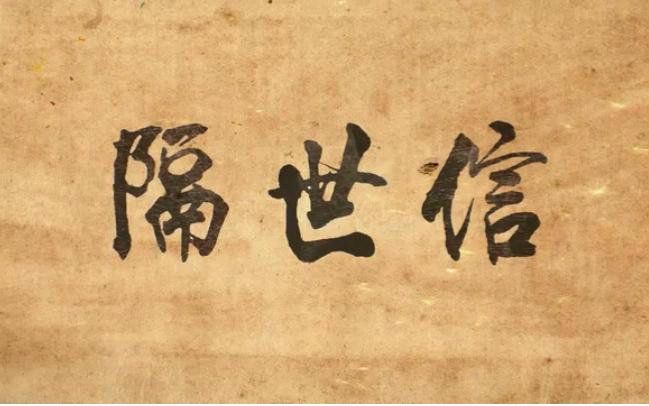 隔世信